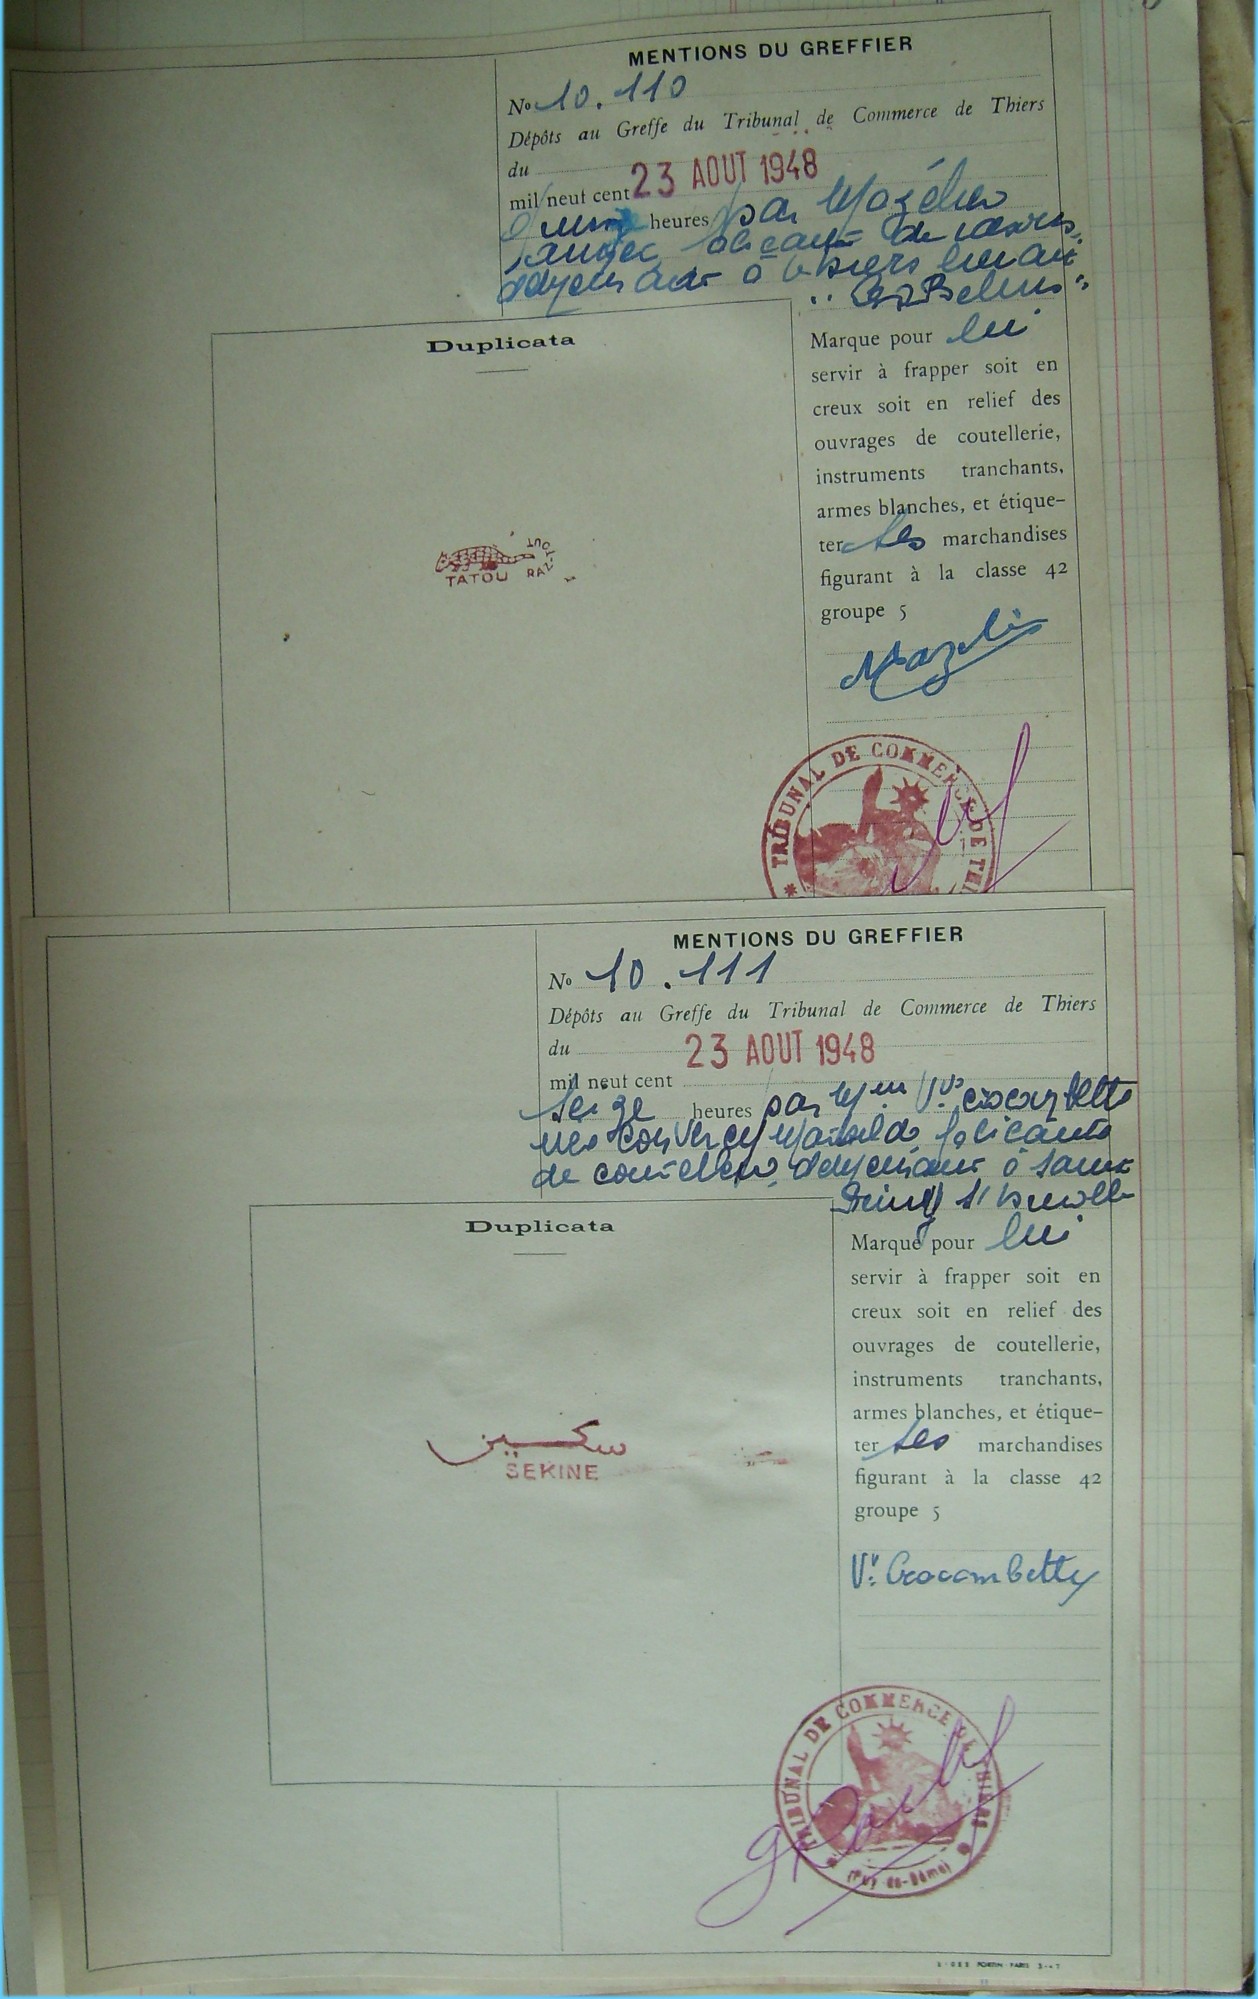 MENTIONS DU GREFFIER
No 10.110
Dépôts au Greffe du Tribunal de Commerce de Thiers
du 23 AOUT 1948
mil neuf cent
heures par
à Thiers
Duplicata
Marque pour lui
servir à frapper soit en
creux soit en relief des
ouvrages de coutellerie,
instruments tranchants,
armes blanches, et étique-
ter ses marchandises
figurant à la classe 42
groupe 5
TATOU RAZ-TOUT
TRIBUNAL DE COMMERCE DE
MENTIONS DU GREFFIER
No 10.111
Dépôts au Greffe du Tribunal de Commerce de Thiers
du 23 AOUT 1948
mil neuf cent
seize heures par Mme Vve Crocombette
née fabricante
de coutellerie, demeurant à Saint
Rémy s/ Durolle
Duplicata
Marque pour lui
servir à frapper soit en
creux soit en relief des
ouvrages de coutellerie,
instruments tranchants,
armes blanches, et étique-
ter ses marchandises
figurant à la classe 42
groupe 5
سكين
SEKINE
Vve Crocombette
TRIBUNAL DE COMMERCE DE THIERS
(Puy-de-Dôme)